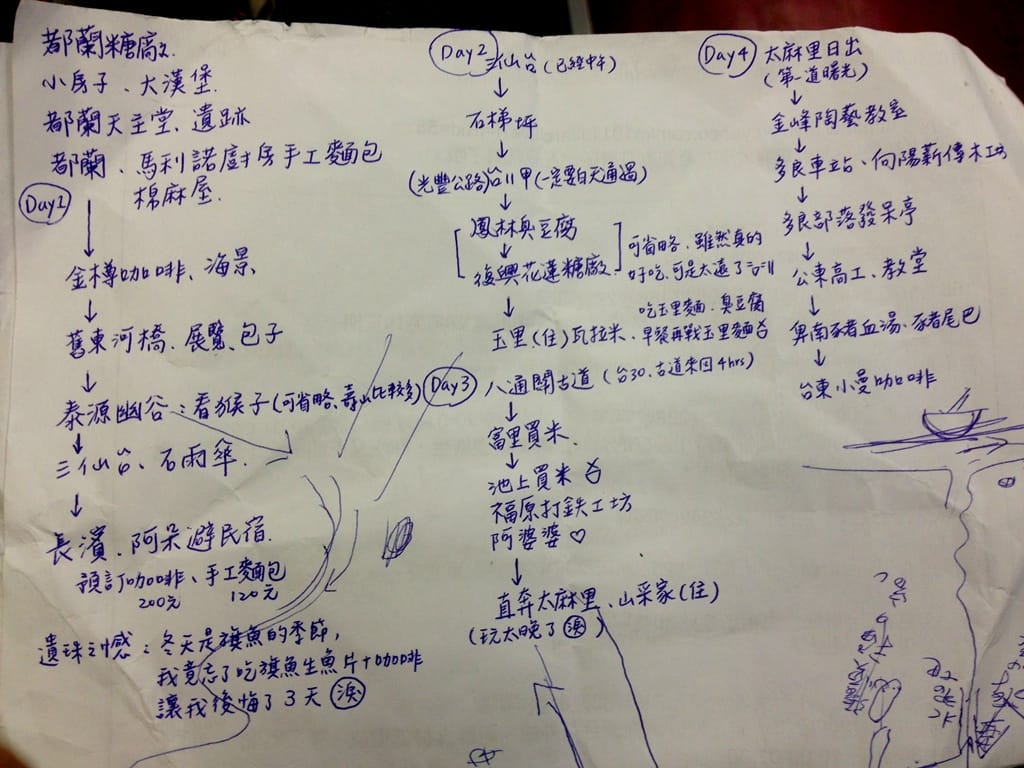 都蘭糖廠.
小房子、大漢堡.
都蘭天主堂、遺跡
都蘭、馬利諾廚房手工麵包
棉麻屋.
Day1
↓
金樽咖啡、海景
↓
舊東河橋、展覽、包子
↓
泰源幽谷:看猴子(可省略、壽山比較多)
↓
三仙台、石雨傘.
↓
長濱、阿朵避民宿.
預訂咖啡、手工麵包
200元 120元
遺珠之憾:冬天是旗魚的季節,
我竟忘了吃旗魚生魚片+咖啡
讓我後悔了3天 淚
Day2
三仙台(已經中午)
↓
石梯坪
↓
(光豐公路)台11甲(一定要白天通過)
↓
鳳林臭豆腐
↓
復興花蓮糖廠
可省略、雖然真的
好吃、可是太遠了
↓
吃玉里麵、臭豆腐
玉里(住)瓦拉米、早餐再戰玉里麵
Day3
八通關古道(台30、古道來回4hrs)
↓
富里買米、
↓
池上買米
福原打鉄工坊
阿婆婆♡
↓
直奔太麻里、山采家(住)
(玩太晚了 淚)
Day4
太麻里日出
(第一道曙光)
↓
金峰陶藝教室
↓
多良車站、向陽薪傳木工坊
↓
多良部落發呆亭
↓
公東高工、教堂
↓
卑南豬血湯、豬尾巴
↓
台東小曼咖啡